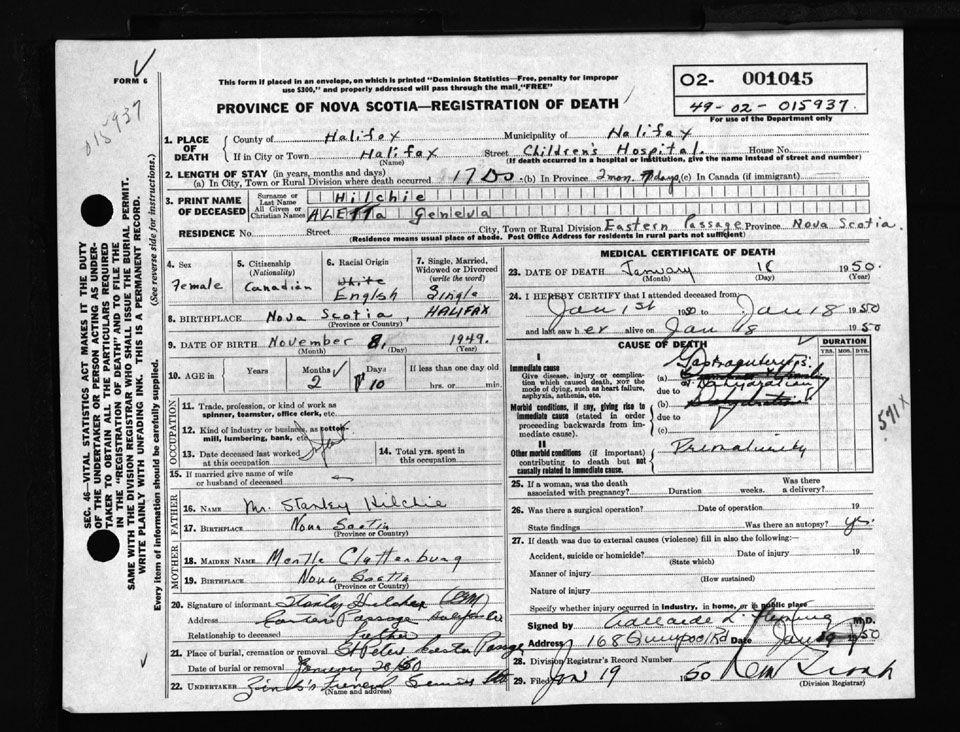 FORM 6
015937
This form if placed in an envelope, on which is printed "Dominion Statistics—Free, penalty for improper
use $300," and properly addressed will pass through the mail, "FREE"
PROVINCE OF NOVA SCOTIA—REGISTRATION OF DEATH
02- 001045
49-02-015937.
For use of the Department only
1. PLACE OF DEATH
County of Halifax Municipality of Halifax
If in City or Town Halifax Street Children's Hospital. House No.
(Name) (If death occurred in a hospital or institution, give the name instead of street and number)
2. LENGTH OF STAY (in years, months and days)
(a) In City, Town or Rural Division where death occurred 17 Ds. (b) In Province 2 mon. days (c) In Canada (if immigrant)
3. PRINT NAME OF DECEASED
Surname or Last Name Hilchie
All Given or Christian Names ALEtta Geneva
RESIDENCE No. Street City, Town or Rural Division Eastern Passage Province Nova Scotia.
(Residence means usual place of abode. Post Office Address for residents in rural parts not sufficient)
4. Sex Female
5. Citizenship (Nationality) Canadian
6. Racial Origin White English
7. Single, Married, Widowed or Divorced (write the word) Single
8. BIRTHPLACE Nova Scotia, HALIFAX
(Province or Country)
9. DATE OF BIRTH November 8, 1949.
(Month) (Day) (Year)
10. AGE Years Months 2 Days 10 If less than one day old hrs. or min.
OCCUPATION
11. Trade, profession, or kind of work as spinner, teamster, office clerk, etc.
12. Kind of industry or business, as cotton-mill, lumbering, bank, etc.
13. Date deceased last worked at this occupation
14. Total yrs. spent in this occupation
15. If married give name of wife or husband of deceased
FATHER
16. NAME Mr. Stanley Hilchie
17. BIRTHPLACE Nova Scotia
(Province or Country)
MOTHER
18. MAIDEN NAME Mertle Clattenburg
19. BIRTHPLACE Nova Scotia
(Province or Country)
20. Signature of informant Stanley Hilchie
Address Eastern Passage Halifax Co
Relationship to deceased Father
21. Place of burial, cremation or removal St Peters Eastern Passage
Date of burial or removal January 20/50
22. UNDERTAKER Zink's Funeral Service
(Name and address)
MEDICAL CERTIFICATE OF DEATH
23. DATE OF DEATH January 18 1950.
(Month) (Day) (Year)
24. I HEREBY CERTIFY that I attended deceased from:
Jan 1st 1950 to Jan 18 1950
and last saw her alive on Jan 18 1950
CAUSE OF DEATH
DURATION
YRS. MOS. DYS.
I
Immediate cause
Give disease, injury or complication which caused death, NOT the mode of dying, such as heart failure, asphyxia, asthenia, etc.
(a) Gastroenteritis
due to Dehydration
Morbid conditions, if any, giving rise to immediate cause (stated in order proceeding backwards from immediate cause).
(b)
due to
(c)
II
Other morbid conditions (if important) contributing to death but not causally related to immediate cause.
Prematurity
571x
25. If a woman, was the death associated with pregnancy? Duration weeks. Was there a delivery?
26. Was there a surgical operation? Date of operation 19
State findings Was there an autopsy? yes.
27. If death was due to external causes (violence) fill in also the following:—
Accident, suicide or homicide? Date of injury 19
(State which)
Manner of injury
(How sustained)
Nature of injury
Specify whether injury occurred in industry, in home, or in public place
Signed by Adelaide L. Fleming M.D.
Address 168 Quinpool Rd Date Jan 19 1950
28. Division Registrar's Record Number
29. Filed Jan 19 1950
(Division Registrar)
SEC. 46—VITAL STATISTICS ACT MAKES IT THE DUTY
OF THE UNDERTAKER OR PERSON ACTING AS UNDER-
TAKER TO OBTAIN ALL THE PARTICULARS REQUIRED
IN THE "REGISTRATION OF DEATH" AND TO FILE THE
SAME WITH THE DIVISION REGISTRAR WHO SHALL ISSUE THE BURIAL PERMIT.
WRITE PLAINLY WITH UNFADING INK. THIS IS A PERMANENT RECORD.
Every item of information should be carefully supplied. (See reverse side for instructions.)